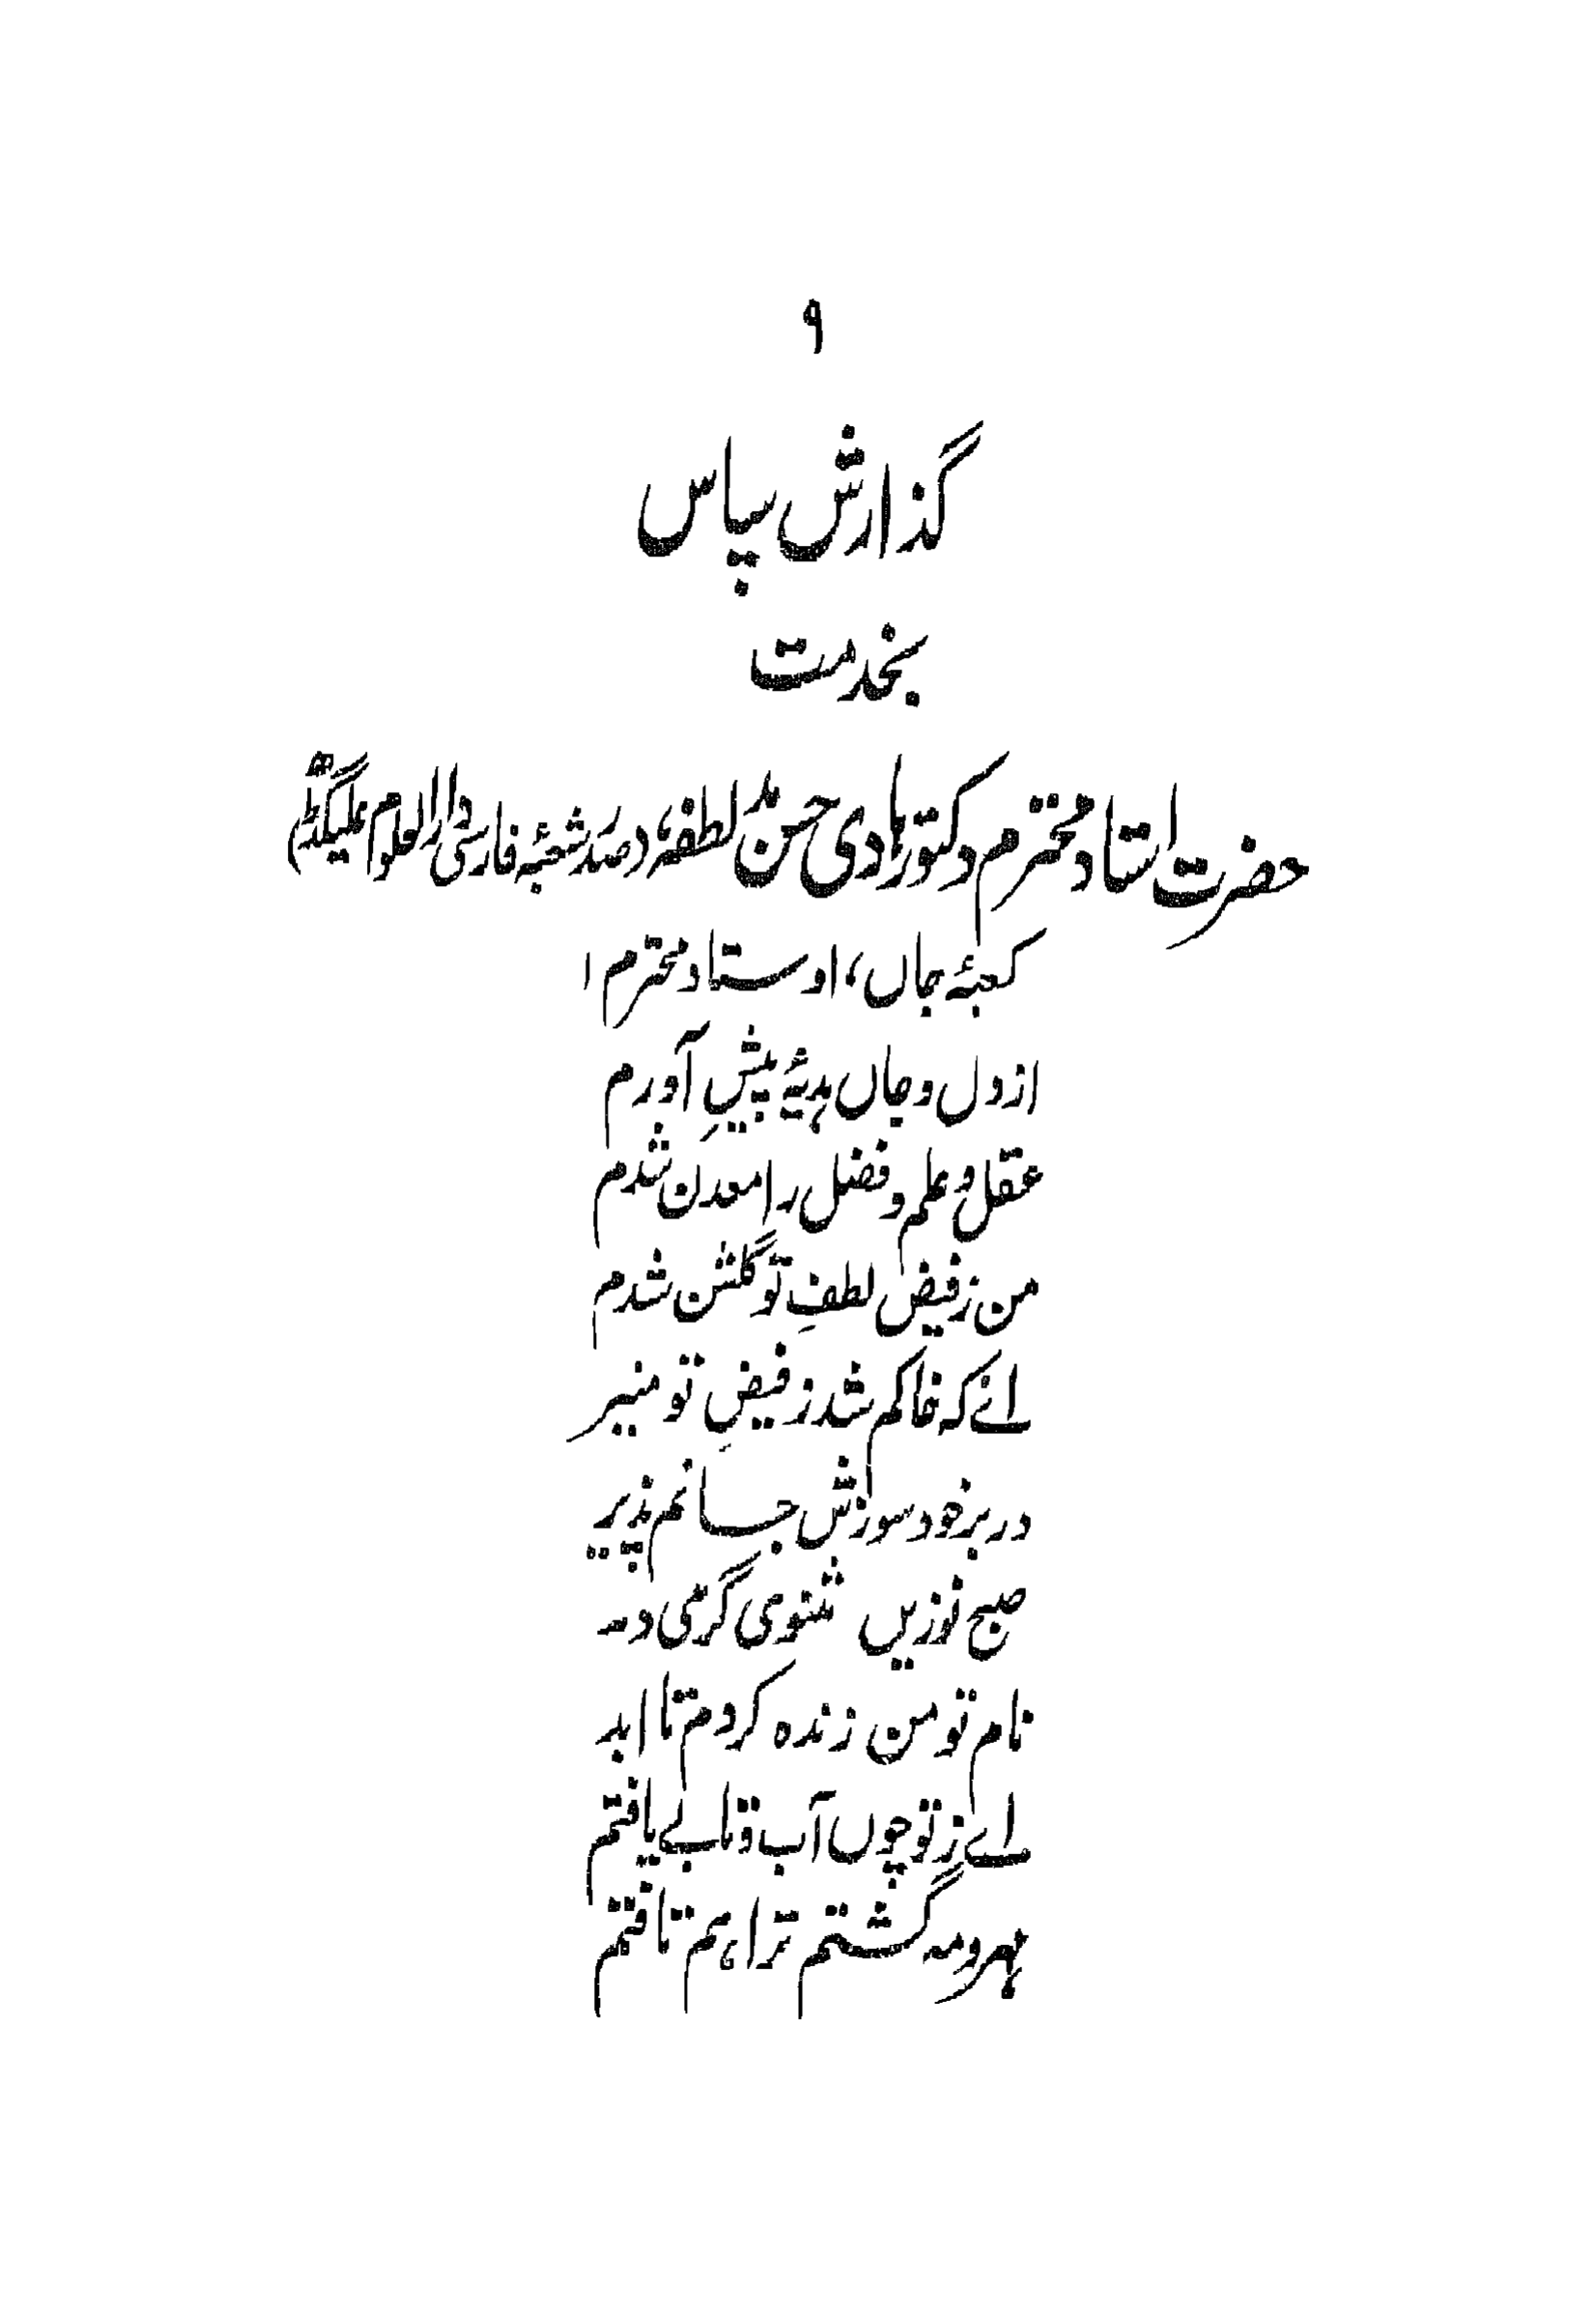 ۹
گذارش سپاس
بخدمت
حضرت استاد محترم دکتور ہادی حسن مد لطفہ، (صدر شعبۂ فارسی دارالعلوم علیگڈھ)
کعبۂ جاں، اوستاد محترم!
از دل و جاں ہدیۂ پیشِ آورم
عقل و علم و فضل را معدن شدم
من ز فیض لطفِ تو گلشن شدم
اے کہ خاکم شد ز فیضِ تو منیر
در بر خود سوزش جانم پذیر
صبح نو زیں مثنوی گر می دمد
نام تو من زندہ کردم تا ابد
اے ز تو چوں آب و تابے یافتم
مہر و مہ گشتم ترا ہم تافتم